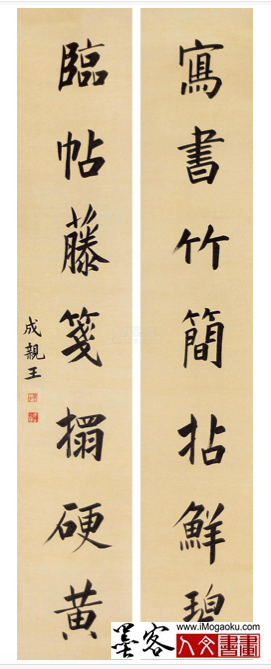 寫書竹簡拈鮮碧
臨帖藤箋搨硬黄
成親王
www.iMogaoku.com
墨客 人文書畫